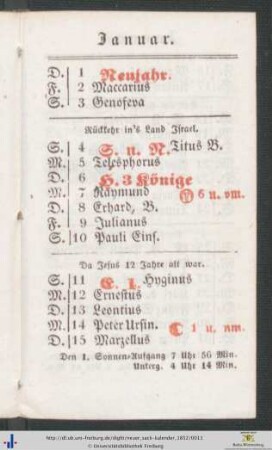 Januar.
D. 1 Neujahr.
F. 2 Maccarius
S. 3 Genofeva
Rückkehr in's Land Israel.
S. 4 S. n. N. Titus B.
M. 5 Telesphorus
D. 6 H. 3 Könige
M. 7 Raymund 6 u. vm.
D. 8 Erhard, B.
F. 9 Julianus
S. 10 Pauli Eins.
Da Jesus 12 Jahre alt war.
S. 11 E. 1. Hyginus
M. 12 Ernestus
D. 13 Leontius
M. 14 Peter Ursin. ☾ 1 u. nm.
D. 15 Marzellus
Den 1. Sonnen-Aufgang 7 Uhr 56 Min.
Unterg. 4 Uhr 14 Min.
http://dl.ub.uni-freiburg.de/diglit/neuer_sack-kalender_1852/0011
© Universitätsbibliothek Freiburg
Baden-Württemberg